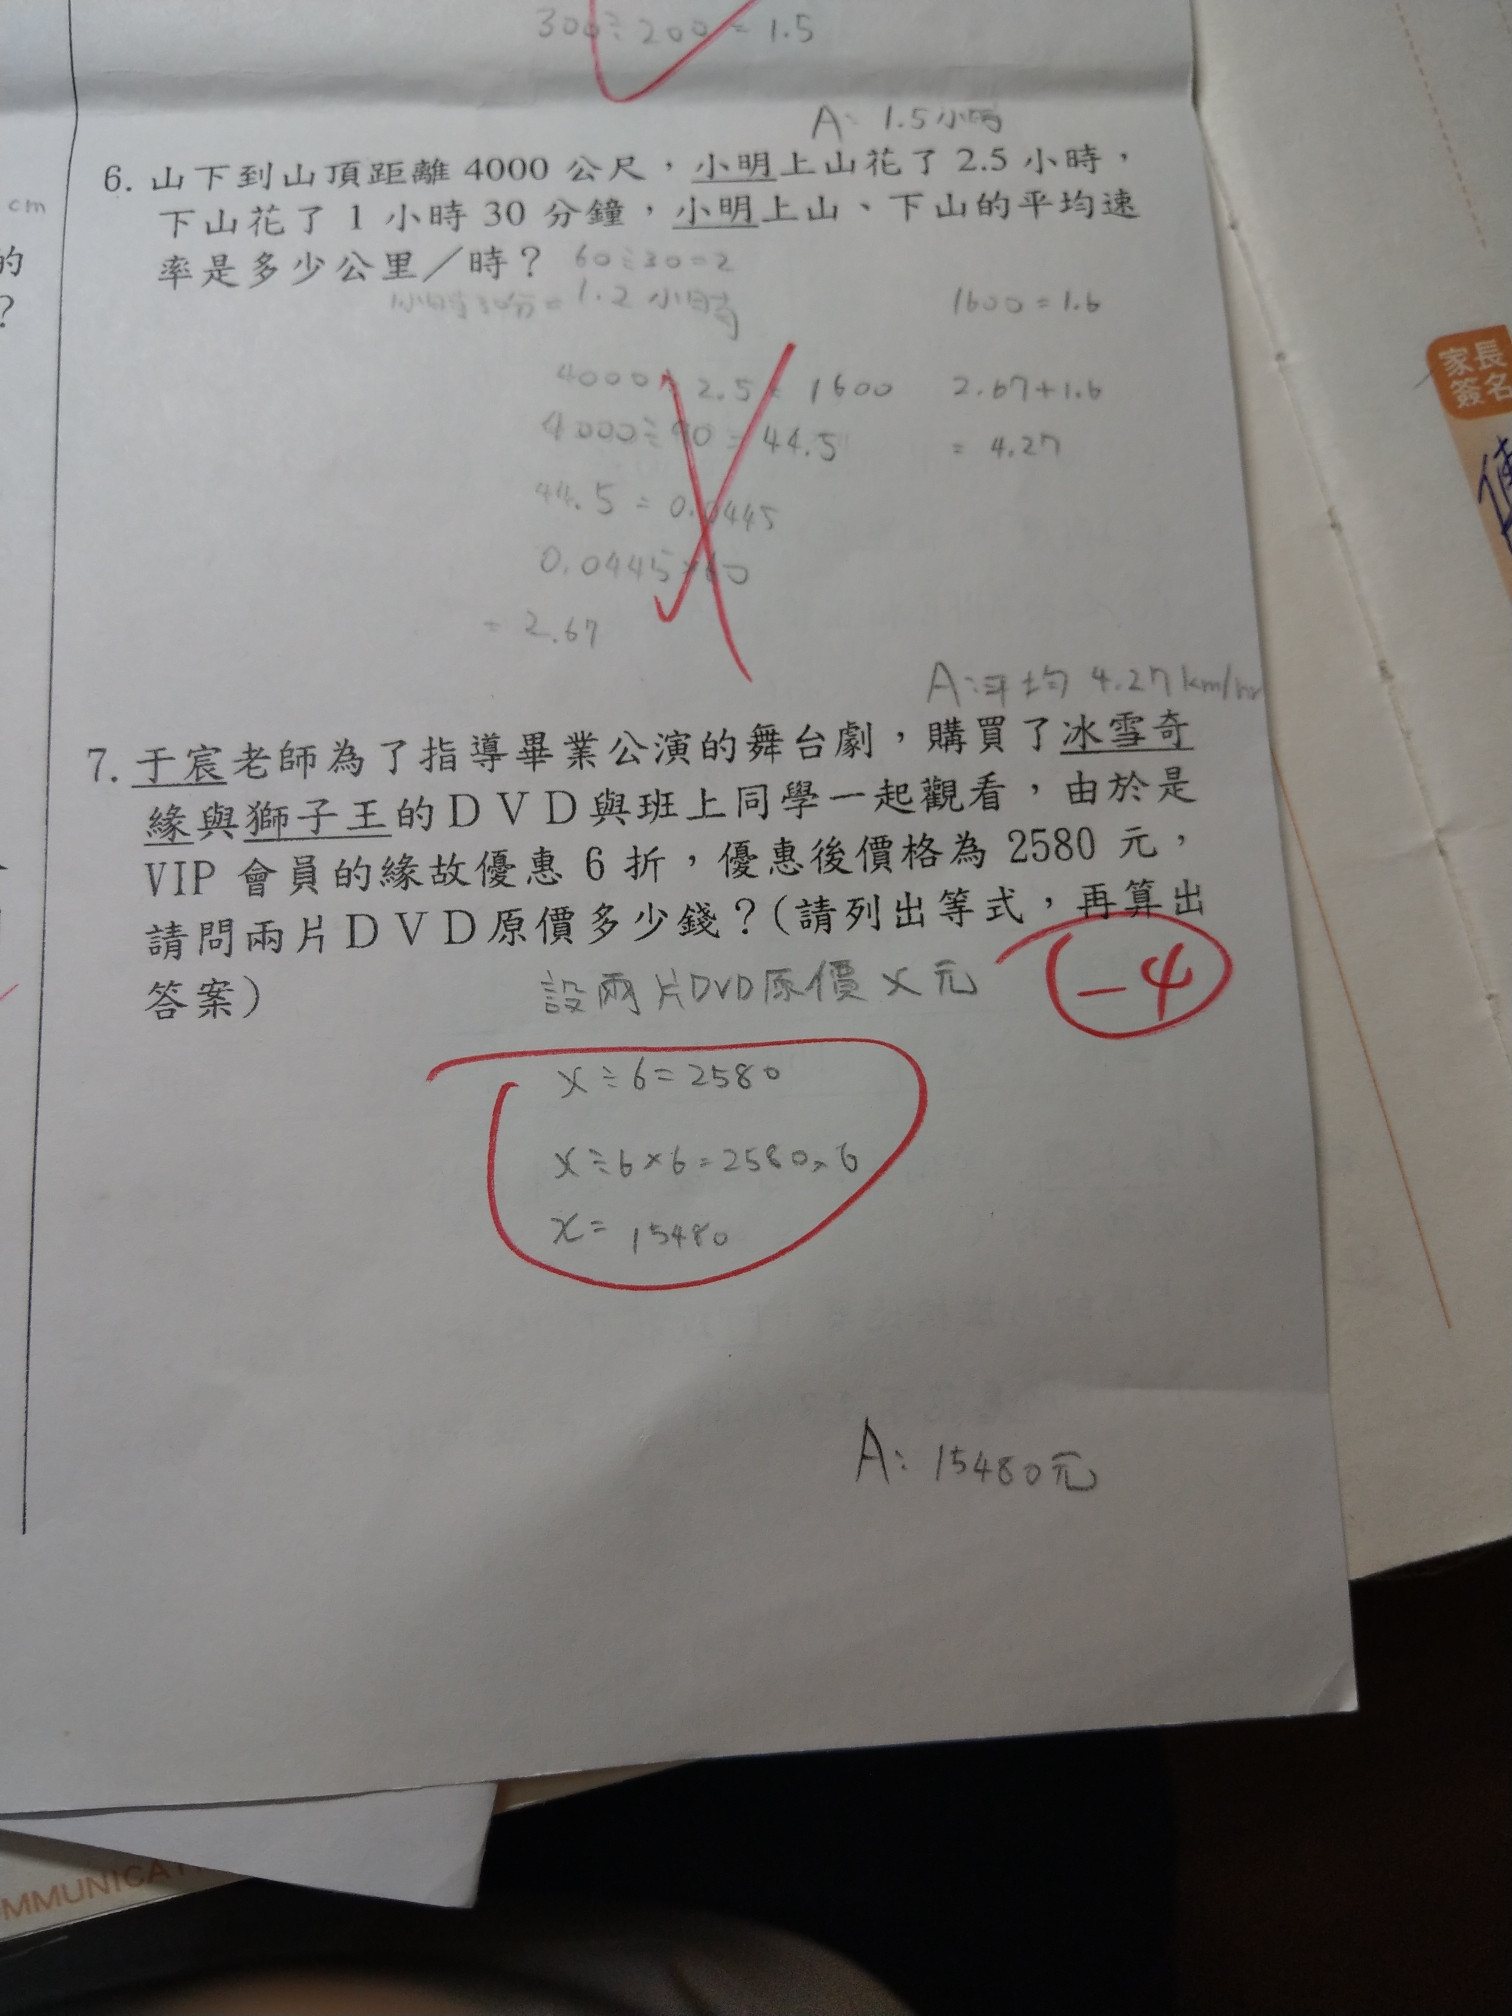 300÷200=1.5
A: 1.5小時
cm
的
?
6. 山下到山頂距離 4000 公尺，小明上山花了 2.5 小時，
下山花了 1 小時 30 分鐘，小明上山、下山的平均速
率是多少公里／時？ 60÷30=2
1小時30分=1.2 小時
1600=1.6
4000÷2.5=1600
2.67+1.6
4000÷90=44.5
=4.27
44.5=0.0445
0.0445×60
=2.67
A:平均 4.27km/hr
7. 于宸老師為了指導畢業公演的舞台劇，購買了冰雪奇
緣與獅子王的ＤＶＤ與班上同學一起觀看，由於是
VIP 會員的緣故優惠 6 折，優惠後價格為 2580 元，
請問兩片ＤＶＤ原價多少錢？(請列出等式，再算出
答案)
設兩片DVD原價 x 元
-4
x÷6=2580
x÷6×6=2580×6
x=15480
A: 15480元
家長
簽名
MMUNICAT